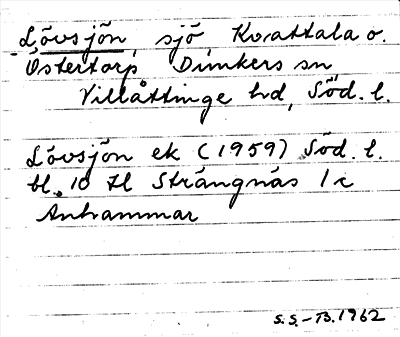 Lövsjön, sjö Kvattala o.
Östertorp Dunkers sn
Villåttinge hd, Söd. l.
Lövsjön ek (1959) Söd. l.
bl. 10 H Strängnäs 1 c
Anhammar
S.S.-B. 1962